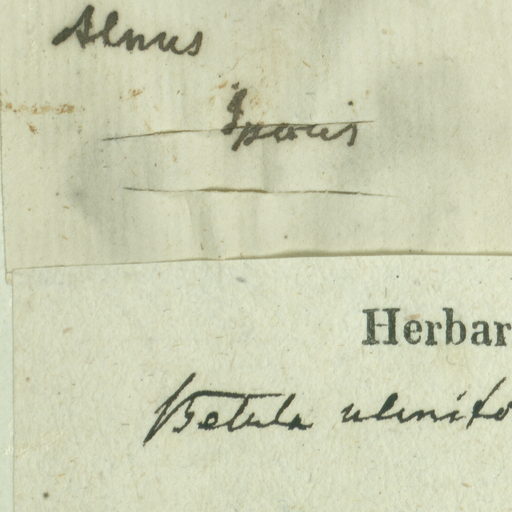 Alnus
Herbar
Betula ulmifo